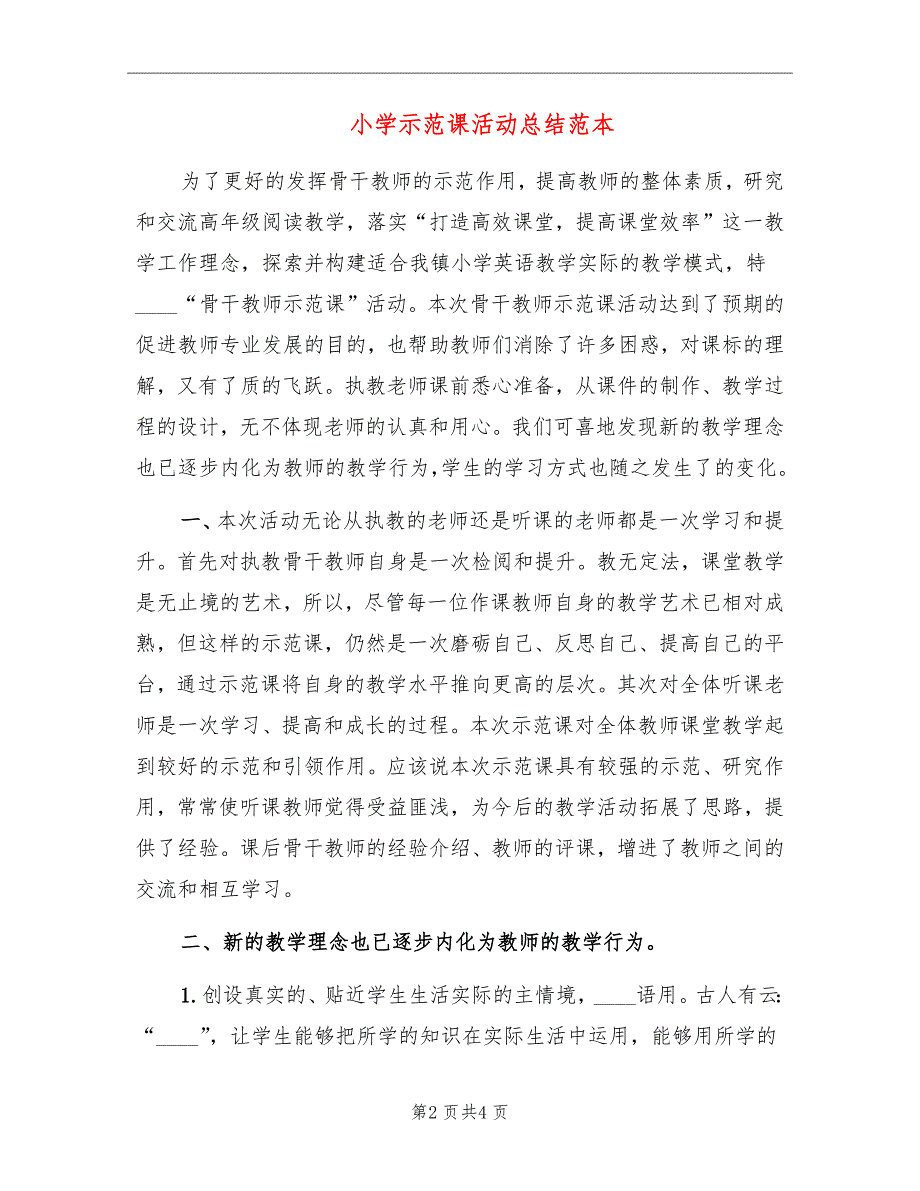 小学示范课活动总结范本
为了更好的发挥骨干教师的示范作用，提高教师的整体素质，研究
和交流高年级阅读教学，落实“打造高效课堂，提高课堂效率”这一教
学工作理念，探索并构建适合我镇小学英语教学实际的教学模式，特
____“骨干教师示范课”活动。本次骨干教师示范课活动达到了预期的
促进教师专业发展的目的，也帮助教师们消除了许多困惑，对课标的理
解，又有了质的飞跃。执教老师课前悉心准备，从课件的制作、教学过
程的设计，无不体现老师的认真和用心。我们可喜地发现新的教学理念
也已逐步内化为教师的教学行为,学生的学习方式也随之发生了的变化。
一、本次活动无论从执教的老师还是听课的老师都是一次学习和提
升。首先对执教骨干教师自身是一次检阅和提升。教无定法，课堂教学
是无止境的艺术，所以，尽管每一位作课教师自身的教学艺术已相对成
熟，但这样的示范课，仍然是一次磨砺自己、反思自己、提高自己的平
台，通过示范课将自身的教学水平推向更高的层次。其次对全体听课老
师是一次学习、提高和成长的过程。本次示范课对全体教师课堂教学起
到较好的示范和引领作用。应该说本次示范课具有较强的示范、研究作
用，常常使听课教师觉得受益匪浅，为今后的教学活动拓展了思路，提
供了经验。课后骨干教师的经验介绍、教师的评课，增进了教师之间的
交流和相互学习。
二、新的教学理念也已逐步内化为教师的教学行为。
1.创设真实的、贴近学生生活实际的主情境，____语用。古人有云：
“____”，让学生能够把所学的知识在实际生活中运用，能够用所学的
第2 页共4 页